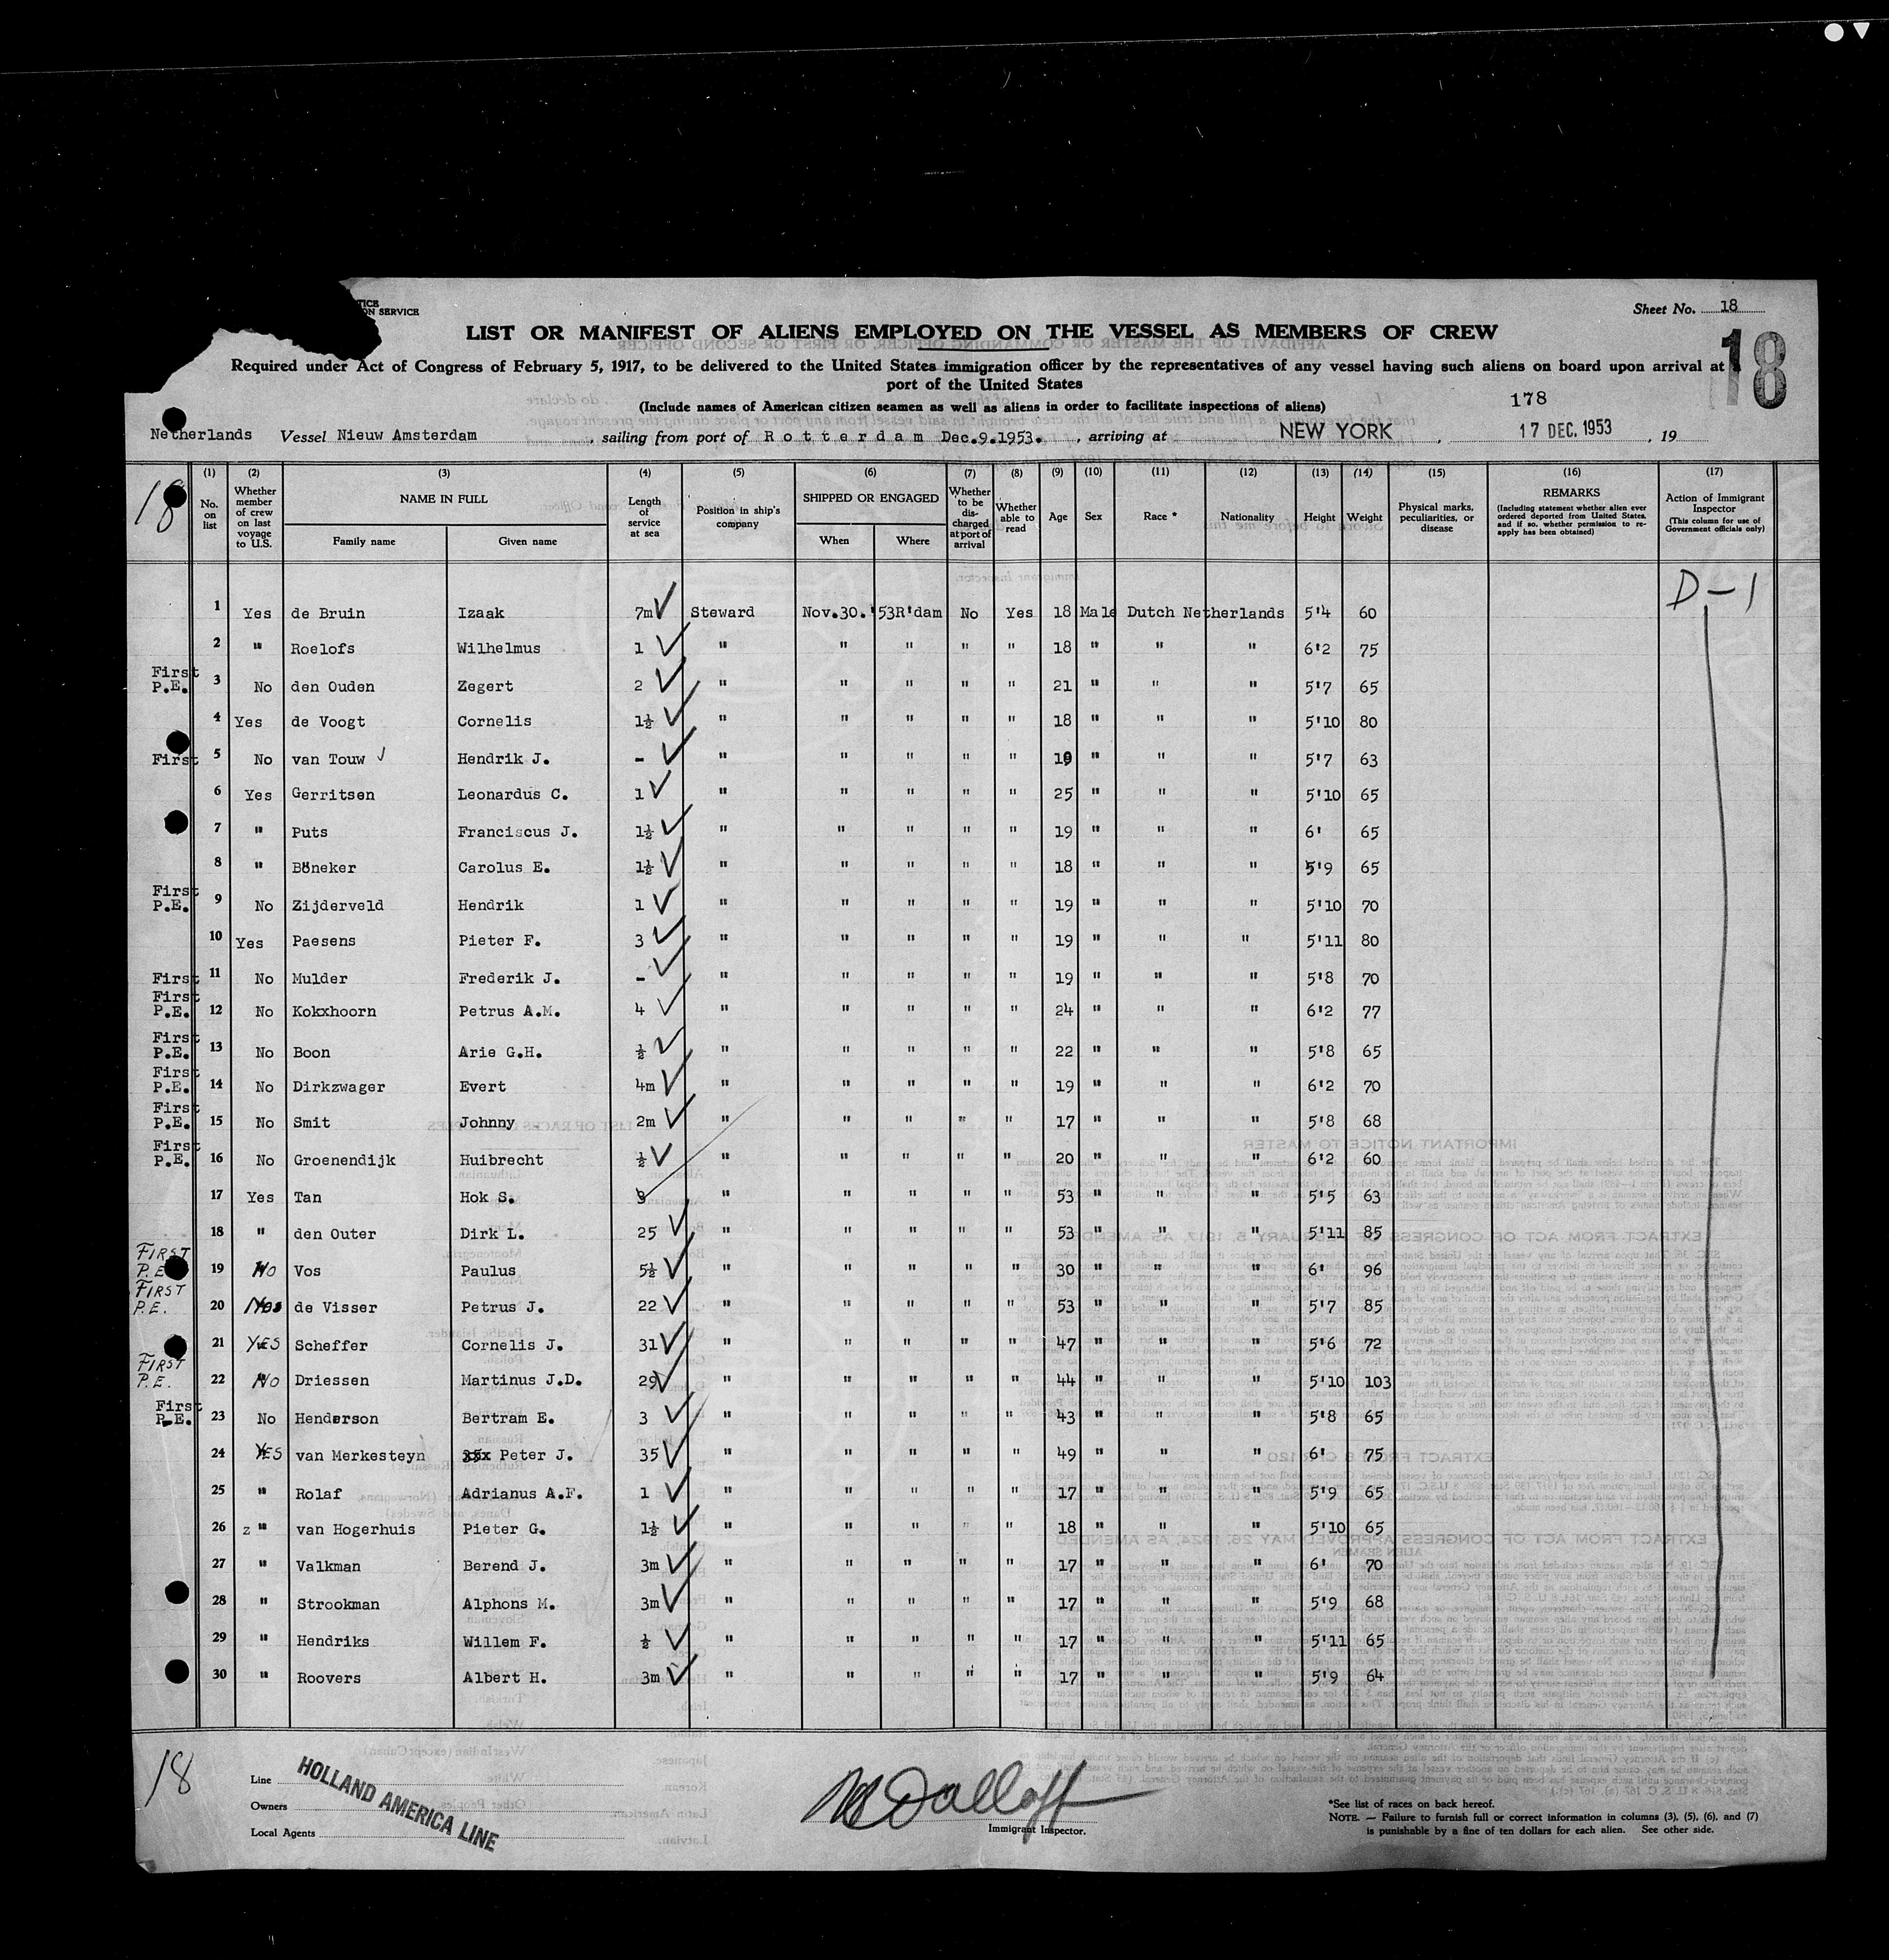 TICE
ON SERVICE
Sheet No. 18
LIST OR MANIFEST OF ALIENS EMPLOYED ON THE VESSEL AS MEMBERS OF CREW
18
Required under Act of Congress of February 5, 1917, to be delivered to the United States immigration officer by the representatives of any vessel having such aliens on board upon arrival at
port of the United States
(Include names of American citizen seamen as well as aliens in order to facilitate inspections of aliens)
178
Netherlands Vessel Nieuw Amsterdam, sailing from port of Rotterdam Dec.9.1953., arriving at NEW YORK, 17 DEC. 1953, 19
18
(1) No. on list (2) Whether member of crew on last voyage to U.S. (3) NAME IN FULL Family name Given name (4) Length of service at sea (5) Position in ship's company (6) SHIPPED OR ENGAGED When Where (7) Whether to be discharged at port of arrival (8) Whether able to read (9) Age (10) Sex (11) Race * (12) Nationality (13) Height (14) Weight (15) Physical marks, peculiarities, or disease (16) REMARKS (Including statement whether alien ever ordered deported from United States, and if so, whether permission to re-apply has been obtained) (17) Action of Immigrant Inspector (This column for use of Government officials only)
D-1
1 Yes de Bruin Izaak 7m Steward Nov.30.'53 R'dam No Yes 18 Male Dutch Netherlands 5'4 60
2 " Roelofs Wilhelmus 1 " " " " " 18 " " " 6'2 75
First P.E. 3 No den Ouden Zegert 2 " " " " " 21 " " " 5'7 65
4 Yes de Voogt Cornelis 1½ " " " " " 18 " " " 5'10 80
First 5 No van Touw Hendrik J. - " " " " " 19 " " " 5'7 63
6 Yes Gerritsen Leonardus C. 1 " " " " " 25 " " " 5'10 65
7 " Puts Franciscus J. 1½ " " " " " 19 " " " 6' 65
8 " Böneker Carolus E. 1½ " " " " " 18 " " " 5'9 65
First P.E. 9 No Zijderveld Hendrik 1 " " " " " 19 " " " 5'10 70
10 Yes Paesens Pieter F. 3 " " " " " 19 " " " 5'11 80
First 11 No Mulder Frederik J. - " " " " " 19 " " " 5'8 70
First P.E. 12 No Kokxhoorn Petrus A.M. 4 " " " " " 24 " " " 6'2 77
First P.E. 13 No Boon Arie G.H. ½ " " " " " 22 " " " 5'8 65
First P.E. 14 No Dirkzwager Evert 4m " " " " " 19 " " " 6'2 70
First P.E. 15 No Smit Johnny 2m " " " " " 17 " " " 5'8 68
First P.E. 16 No Groenendijk Huibrecht ½ " " " " " 20 " " " 6'2 60
17 Yes Tan Hok S. 3 " " " " " 53 " " " 5'5 63
18 " den Outer Dirk L. 25 " " " " " 53 " " " 5'11 85
FIRST P.E. 19 No Vos Paulus 5½ " " " " " 30 " " " 6' 96
FIRST P.E. 20 No de Visser Petrus J. 22 " " " " " 53 " " " 5'7 85
21 YES Scheffer Cornelis J. 31 " " " " " 47 " " " 5'6 72
FIRST P.E. 22 No Driessen Martinus J.D. 29 " " " " " 44 " " " 5'10 103
First P.E. 23 No Henderson Bertram E. 3 " " " " " 43 " " " 5'8 65
24 YES van Merkesteyn Peter J. 35 " " " " " 49 " " " 6' 75
25 " Rolaf Adrianus A.F. 1 " " " " " 17 " " " 5'9 65
26 z " van Hogerhuis Pieter G. 1½ " " " " " 18 " " " 5'10 65
27 " Valkman Berend J. 3m " " " " " 17 " " " 6' 70
28 " Strookman Alphons M. 3m " " " " " 17 " " " 5'9 68
29 " Hendriks Willem F. ½ " " " " " 17 " " " 5'11 65
30 " Roovers Albert H. 3m " " " " " 17 " " " 5'9 64
18
Line
Owners
Local Agents
HOLLAND AMERICA LINE
Immigrant Inspector.
*See list of races on back hereof.
NOTE. — Failure to furnish full or correct information in columns (3), (5), (6), and (7)
is punishable by a fine of ten dollars for each alien. See other side.